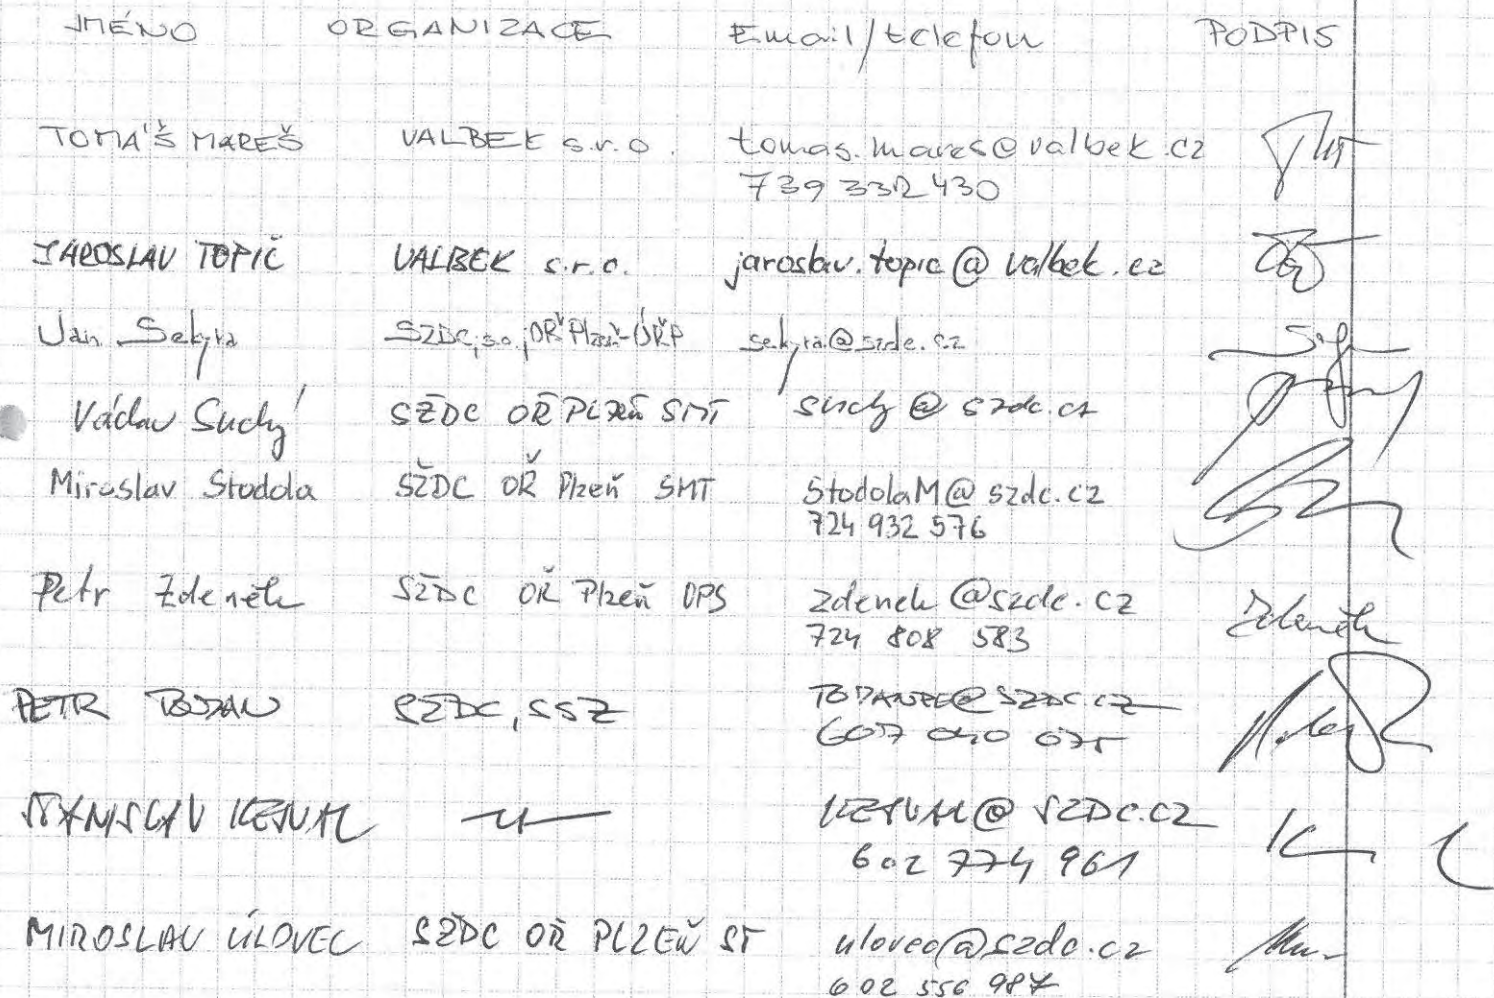 JMÉNO ORGANIZACE Email/telefon PODPIS
TOMÁŠ MAREŠ VALBEK s.r.o. tomas.mares@valbek.cz
739 332 430
JAROSLAV TOPIČ VALBEK s.r.o. jaroslav.topic@valbek.cz
Jan Sekyra SZDC, s.o., OŘ Plzeň-ÚŘP sekyra@szdc.cz
Václav Suchý SŽDC OŘ PLZEŇ SMT suchy@szdc.cz
Miroslav Stodola SŽDC OŘ Plzeň SMT StodolaM@szdc.cz
724 932 576
Petr Zdeněk SŽDC OŘ Plzeň OPS zdenek@szdc.cz
724 808 583 Zdeněk
PETR SŽDC, SSZ
607 040 075
STANISLAV -"- @SZDC.CZ
602 774 961
MIROSLAV ÚLOVEC SŽDC OŘ PLZEŇ ST ulovec@szdc.cz
602 556 987